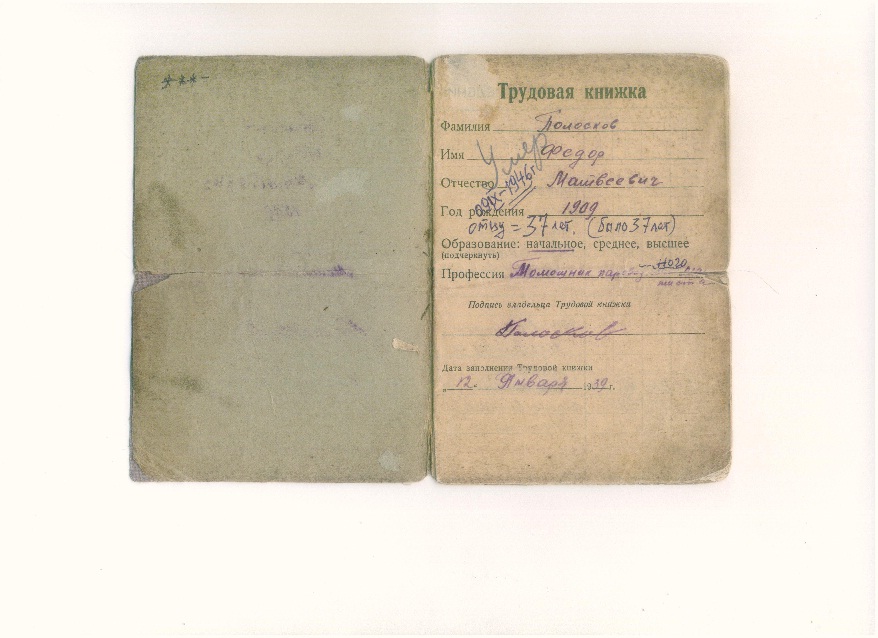 Трудовая книжка
Фамилия Полосков
Имя Федор
Умер
Отчество Матвеевич
09/IX-1946г
Год рождения 1909
отцу = 37 лет. (было 37 лет)
Образование: начальное, среднее, высшее
(подчеркнуть)
Профессия Помошник ного
Подпись владельца Трудовой книжки
Полосков
Дата заполнения Трудовой книжки
„12“ Января 1939 г.